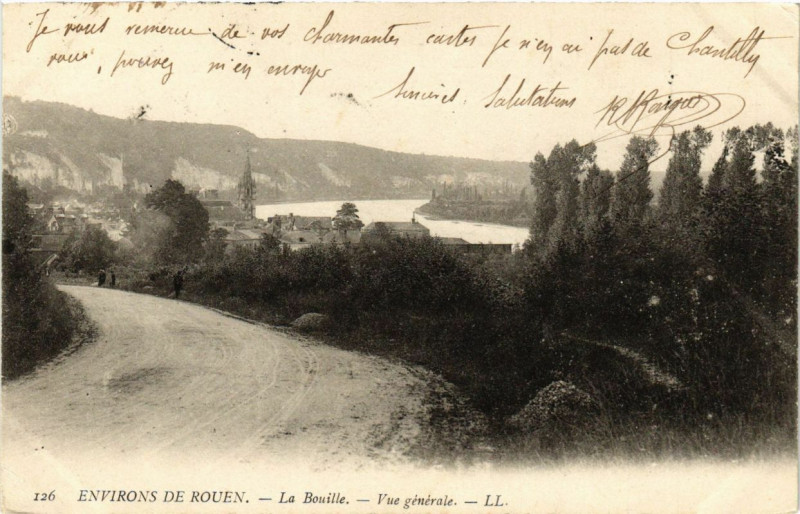 Je vous remercie de vos charmantes cartes je n'en ai pas de Chantilly
vous, pouvez m'en envoyer
Sincères Salutations
126 ENVIRONS DE ROUEN. — La Bouille. — Vue générale. — LL.